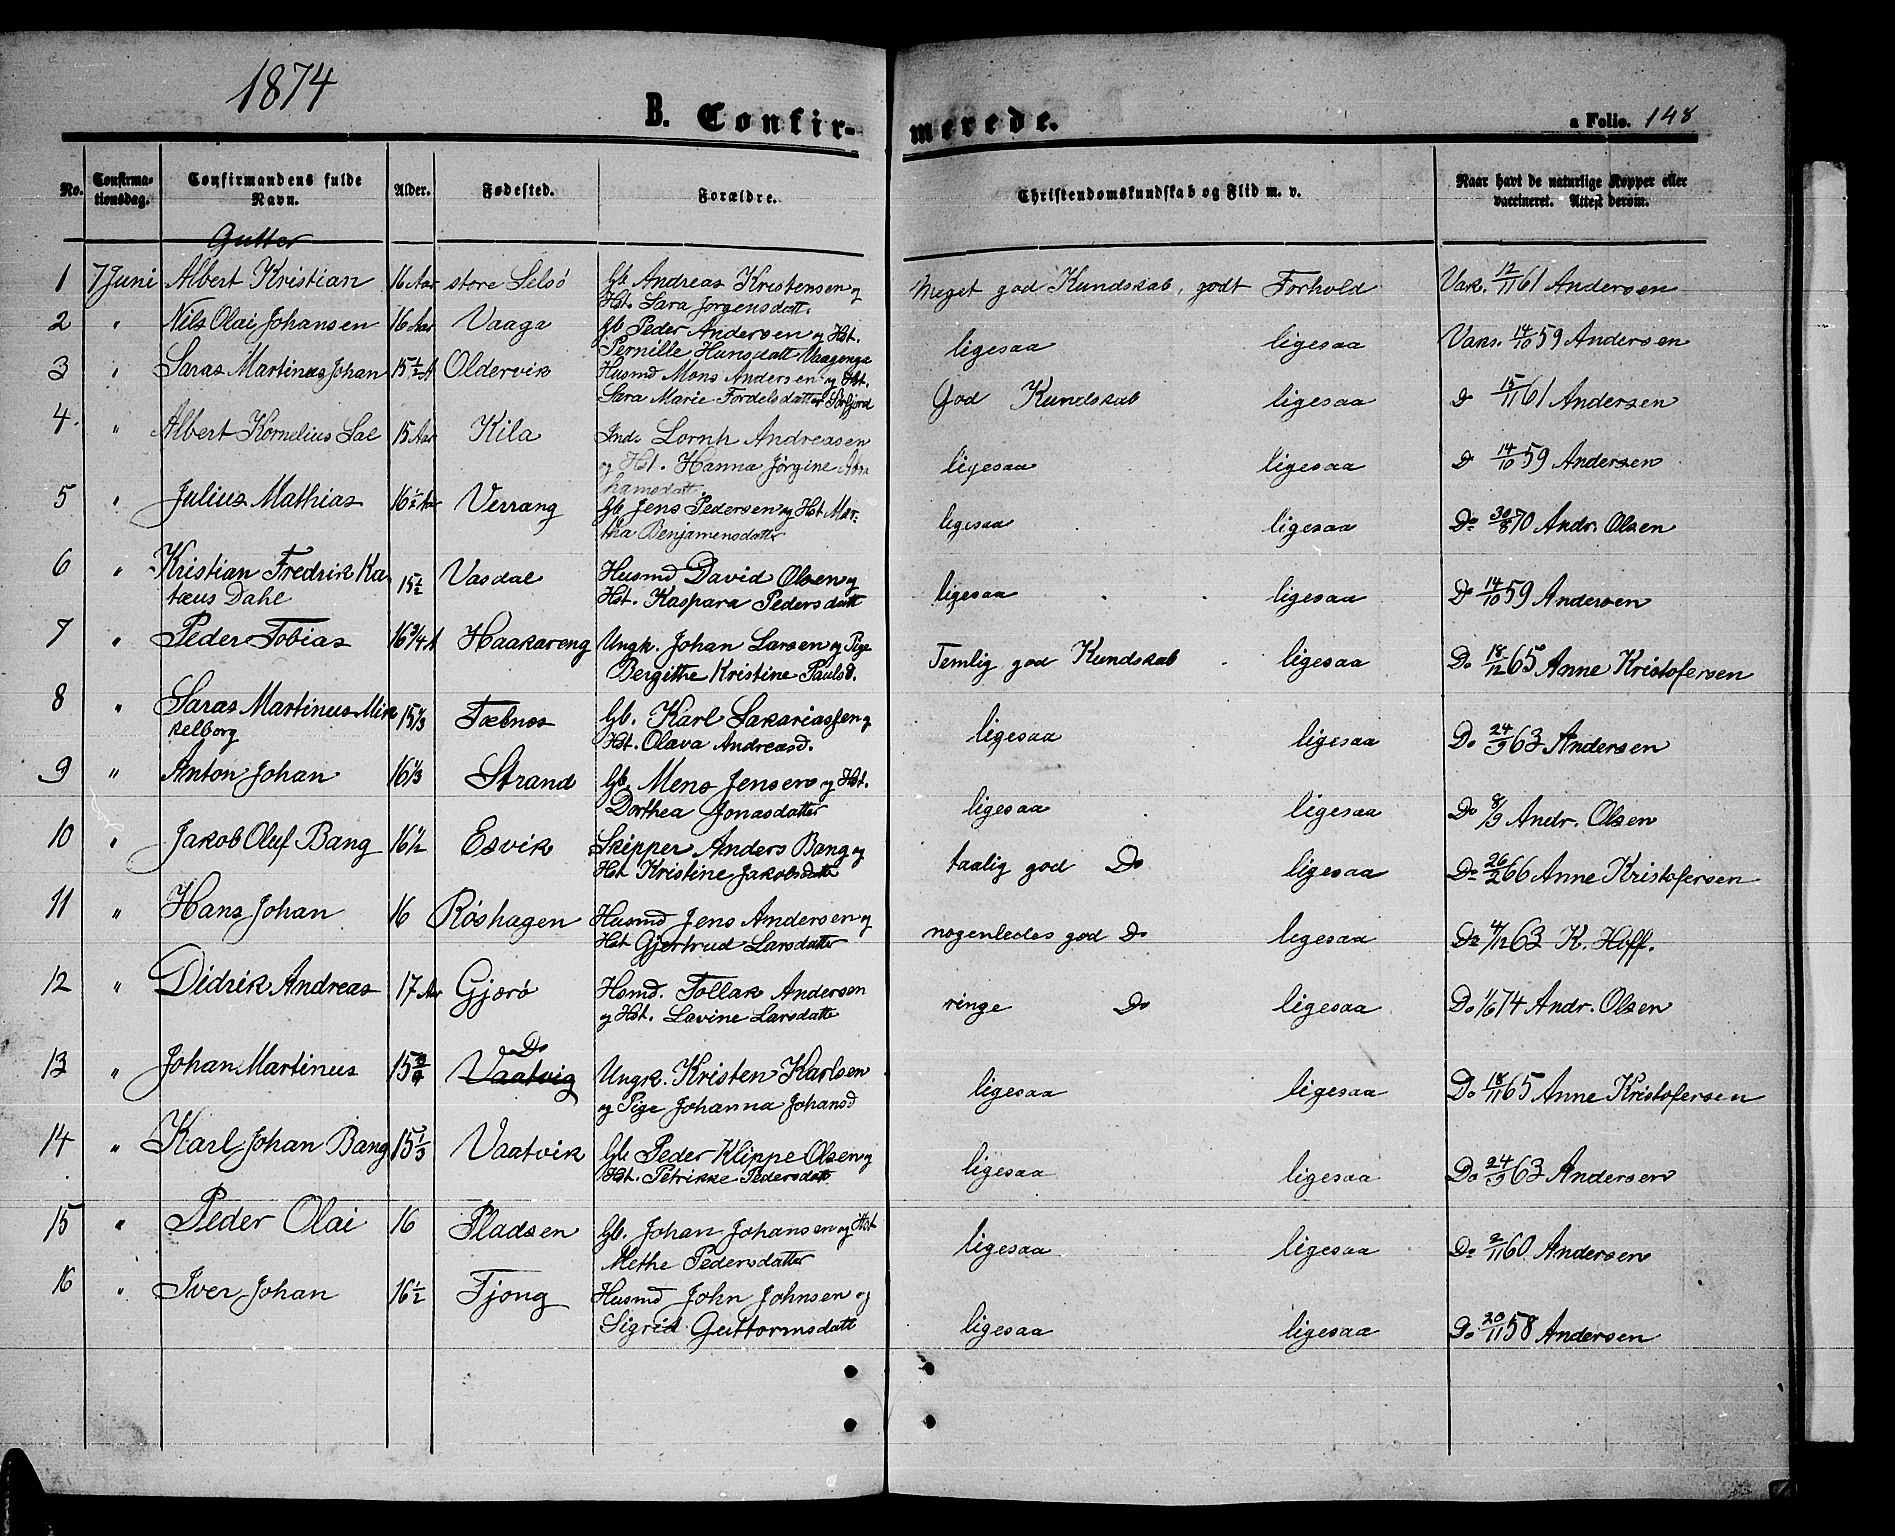 1874
B. Confirmerede.
a Folio. 148
No. Confirmationsdag. Confirmandens fulde Navn. Alder. Fødested. Forældre. Christendomskundskab og Flid m. v. Naar havt de naturlige Kopper eller vaccineret. Attest derom.
Gutter
1 7 Juni Albert Kristian 16 Aar store Selsö Gb Andreas Kristensen og Meget god Kundskab, godt Forhold Vak. 12/11 61 Andersen
Hst. Sara Jørgensdatt.
2 " Nils Olai Johansen 16 Aar Vaaga Gb Peder Andersen og Hst. ligesaa ligesaa Vaks. 14/10 59 Andersen
Pernille Hansdatt Vaagenge
3 " Saras Martinus Johan 15 1/2 A Oldervik Husmd Mons Andersen og Hst. God Kundskab ligesaa Do 15/11 61 Andersen
Sara Marie Fordelsdatter Sörfjord
4. " Albert Kornelius Sal 15 Aar Kila Ind. Lornh Andreasen ligesaa ligesaa Do 14/10 59 Andersen
og Hst. Hanna Jörgine Abra
hamsdatt.
5 " Julius Mathias 16 1/2 Aar Verrang Gb Jens Pedersen og Hst Mar- ligesaa ligesaa Do 30/8 70 Andr. Olsen
tha Benjamensdatter
6 " Kristian Fredrik Ka 15 1/2 Vasdal Husmd David Olsen og ligesaa ligesaa Do 14/10 59 Andersen
tæus Dahl Hst. Kaspara Pedersdatt
7 " Peder Tobias 16 3/4 A Haakareng Ungk. Johan Larsen og Pige Temlig god Kundskab ligesaa Do 18/12 65 Anne Kristofersen
Bergithe Kristine Pauls d.
8 " Saras Martinus Mik 15 1/3 Tæbnes Gb. Karl Sakariassen og ligesaa ligesaa Do 24/9 63 Andersen
kelborg Hst. Olava Andreasd.
9 " Anton Johan 16 1/3 Strand Gb. Mens Jensen og Hst. ligesaa ligesaa Do 8/9 Andr. Olsen
Dorthea Jonasdatter
10 " Jakob Oluf Bang 16 1/2 Esvik Skipper Anders Bang og taalig god Do ligesaa Do 26/2 66 Anne Kristofersen
Hst Kristine Jakobsdatte
11 " Hans Johan 16 Röshagen Husmd Jens Andersen og nogenledes god Do ligesaa Do 4/12 63 K. Hoff.
Hst Gjertrud Larsdatter
12 " Didrik Andreas 17 Aar Gjerö Hsmd. Tollak Andersen ringe Do ligesaa Do 1/6 74 Andr. Olsen
og Hst. Lavine Larsdatte
13 " Johan Martinus 15 3/4 Do Vaatvig Ungk. Kristen Karlsen ligesaa ligesaa Do 18/11 65 Anne Kristofersen
og Pige Johanna Johansd
14 " Karl Johan Bang 15 1/3 Vaatvik Gb Peder Klippe Olsen og ligesaa ligesaa Do 24/9 63 Andersen
Hst. Petrikke Pedersdatt
15 " Peder Olai 16 Pladsen Gb. Johan Johansen og Hst ligesaa ligesaa Do 2/11 60 Andersen
Methe Pedersdatter
16 " Iver Johan 16 1/2 Tjong Husmd John Johnsen og ligesaa ligesaa Do 20/11 58 Andersen
Sigrid Guttormsdatt